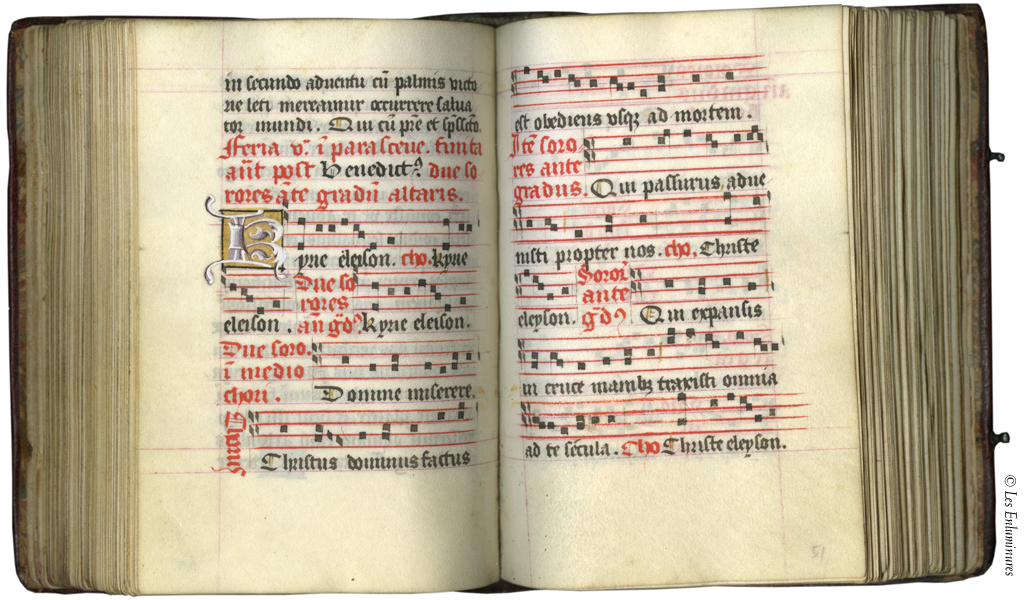 in secundo aduentu cū palmis victo
rie leti mereamur occurrere salua
tori mundi. Qui cū pr̄e et sp̄ūscto.
Feria vi. ī parasceue. finita
aūt post Benedictꝰ due so
rores āte gradū altaris.
Kyrie eleison. cho. kyrie
Due so
rores
eleison. an gdꝰ Kyrie eleison.
Due soro.
ī medio
chori. Domine miserere.
Chorus
Christus dominus factus
est obediens vsqꝫ ad mortem.
Itē soro
res ante
gradus. Qui passurus adue
nisti propter nos. cho. Christe
Soror
ante
eleyson. gdꝰ Qui expansis
in cruce manibꝫ traxisti omnia
ad te secula. Cho Christe eleyson.
51
© Les Enluminures